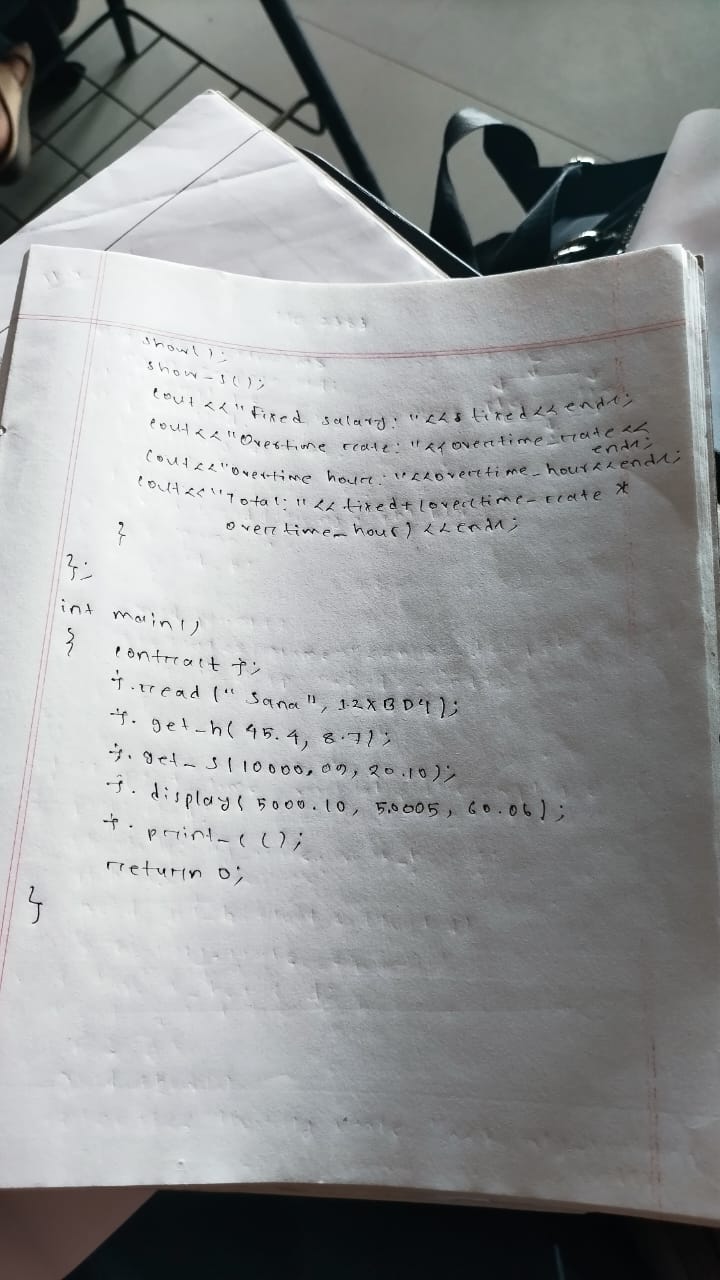 show();
show_s();
cout<<"Fixed salary: "<<s fixed<<endl;
cout<<"Overtime rate: "<<overtime_rate<<
endl;
cout<<"overtime hour: "<<overtime_hour<<endl;
cout<<"Total: "<<fixed+(overtime_rate *
overtime_hour)<<endl;
}
};
int main()
{
contract f;
f.read("Sana", 12XBD4);
f.get_h(45.4, 8.7);
f.get_s(10000,09, 20.10);
f.display(5000.10, 5.0005, 60.06);
f.print_c();
return 0;
}